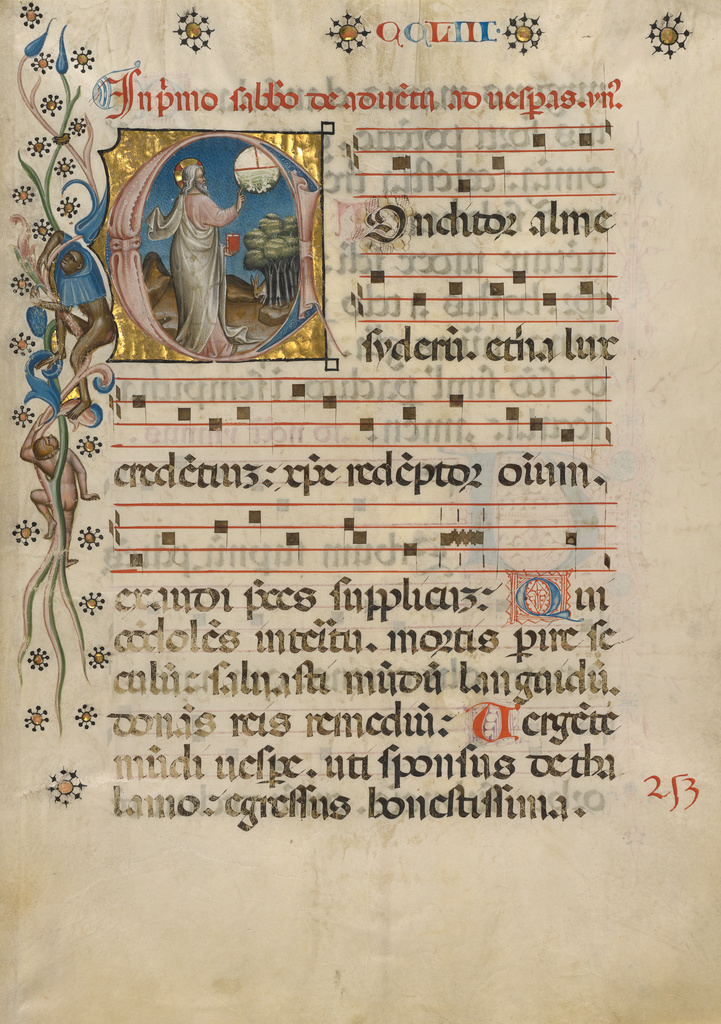 CCLIII.
In p̄mo sabb̄o de aduētu ad uesp̄as. yn̄.
Onditor alme
syderū. et̄na lux
credētiuꝫ: xp̄e redēptor oīum.
exaudi p̄ces suppliciꝫ: Qui
cōdolēs int̄itu. mortis ꝑire se
culū: saluasti mūdū languidū.
donās reis remediū: Uergēte
mūdi uesp̄e. uti sponsus de tha
lamo: egressus honestissima.
253